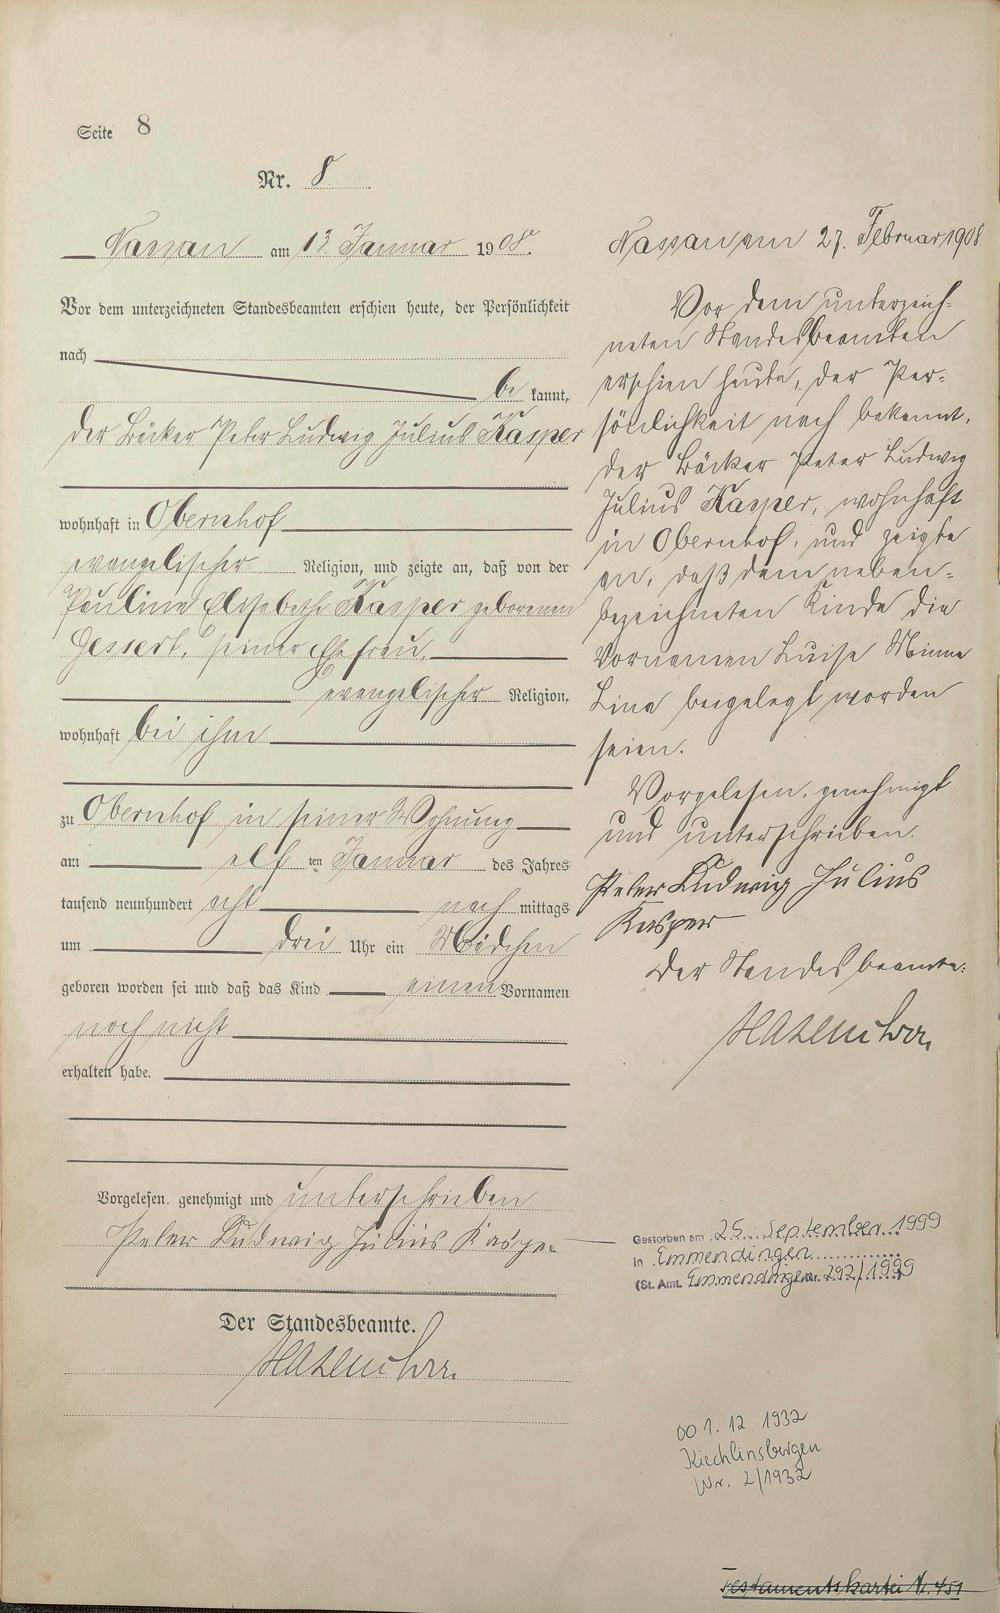 Seite 8
Nr. 8
Nassau am 13. Januar 1908.
Vor dem unterzeichneten Standesbeamten erschien heute, der Persönlichkeit
nach
be kannt,
der Bäcker Peter Ludwig Julius Kasper
wohnhaft in Obernhof
evangelischer Religion, und zeigte an, daß von der
Pauline Elisabethe Kasper geborenen
Gessert, seiner Ehefrau,
evangelischer Religion,
wohnhaft bei ihm
zu Obernhof in seiner Wohnung
am elf ten Januar des Jahres
tausend neunhundert acht nach mittags
um drei Uhr ein Mädchen
geboren worden sei und daß das Kind einen Vornamen
noch nicht
erhalten habe.
Vorgelesen, genehmigt und unterschrieben
Peter Ludwig Julius Kasper
Der Standesbeamte.
Nassau am 27. Februar 1908.
Vor dem unterzeich-
neten Standesbeamten
erschien heute, der Per-
sönlichkeit nach bekannt,
der Bäcker Peter Ludwig
Julius Kasper, wohnhaft
in Obernhof, und zeigte
an, daß dem neben-
bezeichneten Kinde die
Vornamen Luise Minna
Lina beigelegt worden
seien.
Vorgelesen, genehmigt
und unterschrieben.
Peter Ludwig Julius
Kasper
Der Standesbeamte:
Gestorben am 25. September 1999
in Emmendingen
(St. Amt Emmendingen Nr. 292/1999)
oo 1. 12. 1932
Kiechlinsbergen
Nr. 2/1932
Testamentskartei Nr. 451